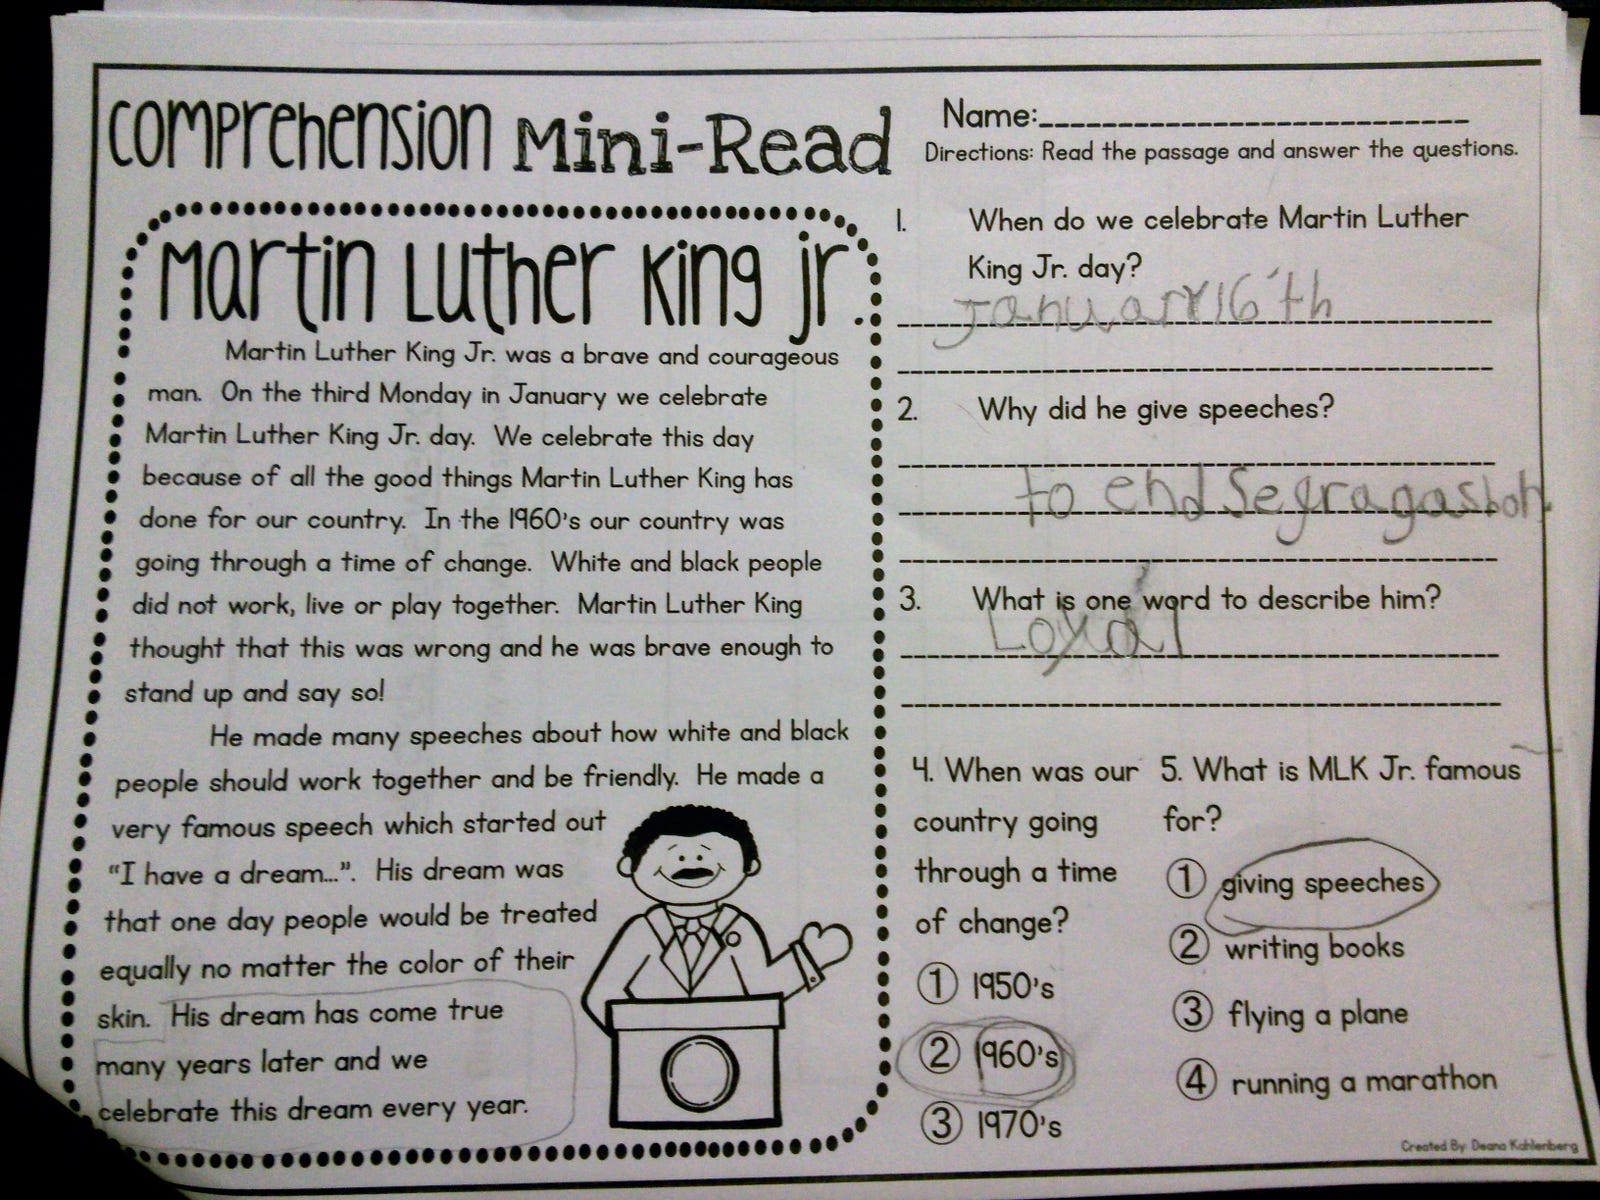 Comprehension Mini-Read
Name:
Directions: Read the passage and answer the questions.
Martin Luther King Jr.
Martin Luther King Jr. was a brave and courageous
man. On the third Monday in January we celebrate
Martin Luther King Jr. day. We celebrate this day
because of all the good things Martin Luther King has
done for our country. In the 1960's our country was
going through a time of change. White and black people
did not work, live or play together. Martin Luther King
thought that this was wrong and he was brave enough to
stand up and say so!
He made many speeches about how white and black
people should work together and be friendly. He made a
very famous speech which started out
"I have a dream...". His dream was
that one day people would be treated
equally no matter the color of their
skin. His dream has come true
many years later and we
celebrate this dream every year.
1. When do we celebrate Martin Luther
King Jr. day?
January 16th
2. Why did he give speeches?
to end Segragastion.
3. What is one word to describe him?
Loyal
4. When was our
country going
through a time
of change?
1 1950's
2 1960's
3 1970's
5. What is MLK Jr. famous
for?
1 giving speeches
2 writing books
3 flying a plane
4 running a marathon
Created By: Deana Kahlenberg